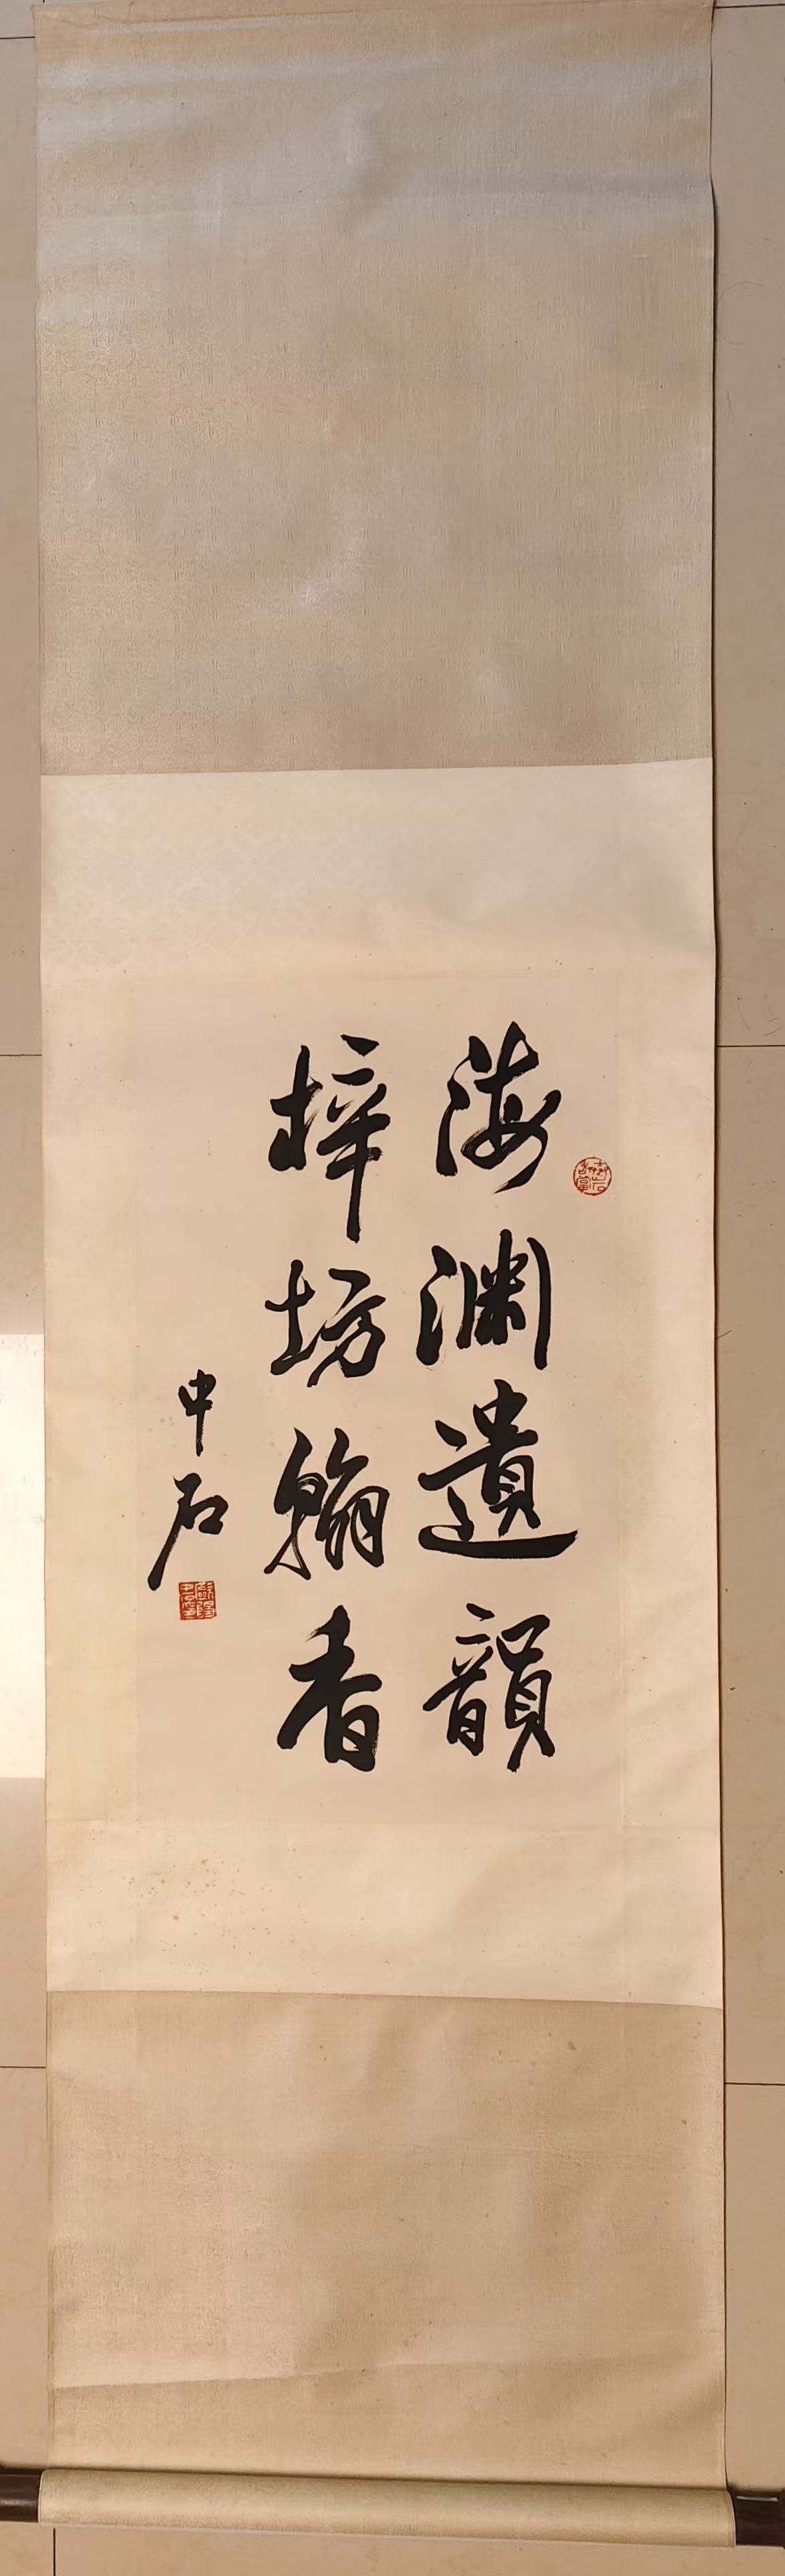 海渊遺韻
梓坊翰香
中石